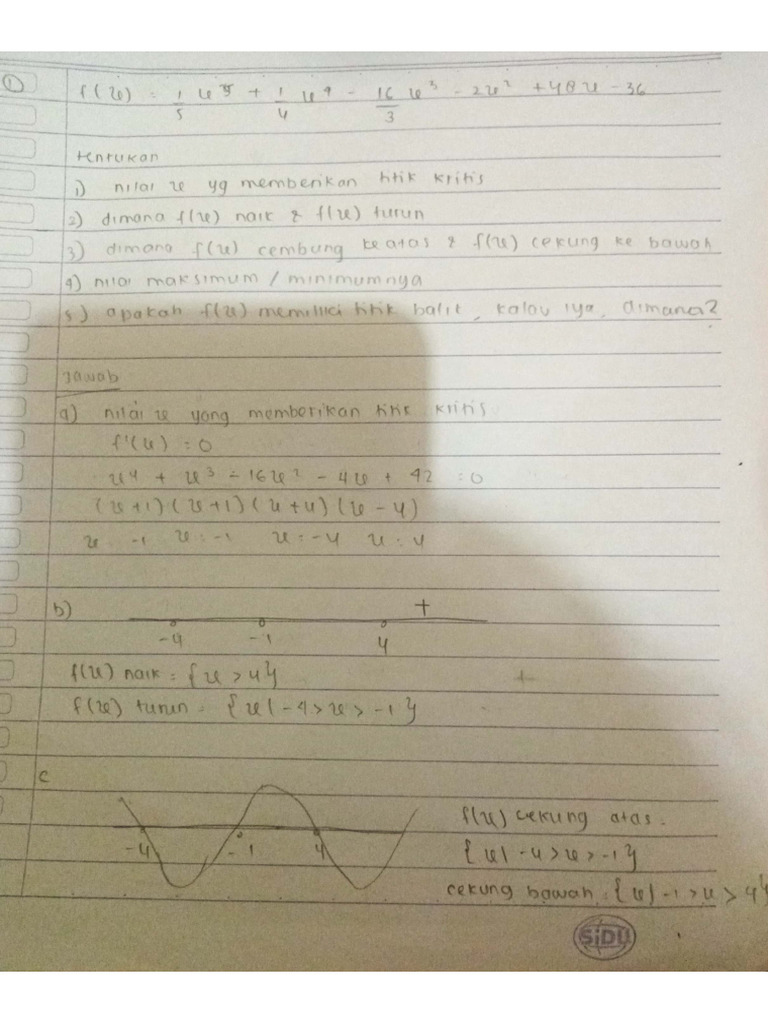 ①
f(x) = 1/5 x⁵ + 1/4 x⁴ - 16/3 x³ - 2x² + 48x - 36
tentukan
1) nilai x yg memberikan titik kritis
2) dimana f(x) naik & f(x) turun
3) dimana f(x) cembung ke atas & f(x) cekung ke bawah
4) nilai maksimum / minimumnya
5) apakah f(x) memiliki titik balik, kalau iya, dimana?
Jawab
a) nilai x yang memberikan titik kritis
f'(x) = 0
x⁴ + x³ - 16x² - 4x + 42 = 0
(x+1) (x+1) (x+4) (x-4)
x -1 x = -1 x = -4 x = 4
b) +
-4 -1 4
f(x) naik = {x > 4}
f(x) turun = {x | -4 > x > -1}
c
-4 -1 4
f(x) cekung atas
{x | -4 > x > -1}
cekung bawah : {x | -1 > x > 4}
SiDU